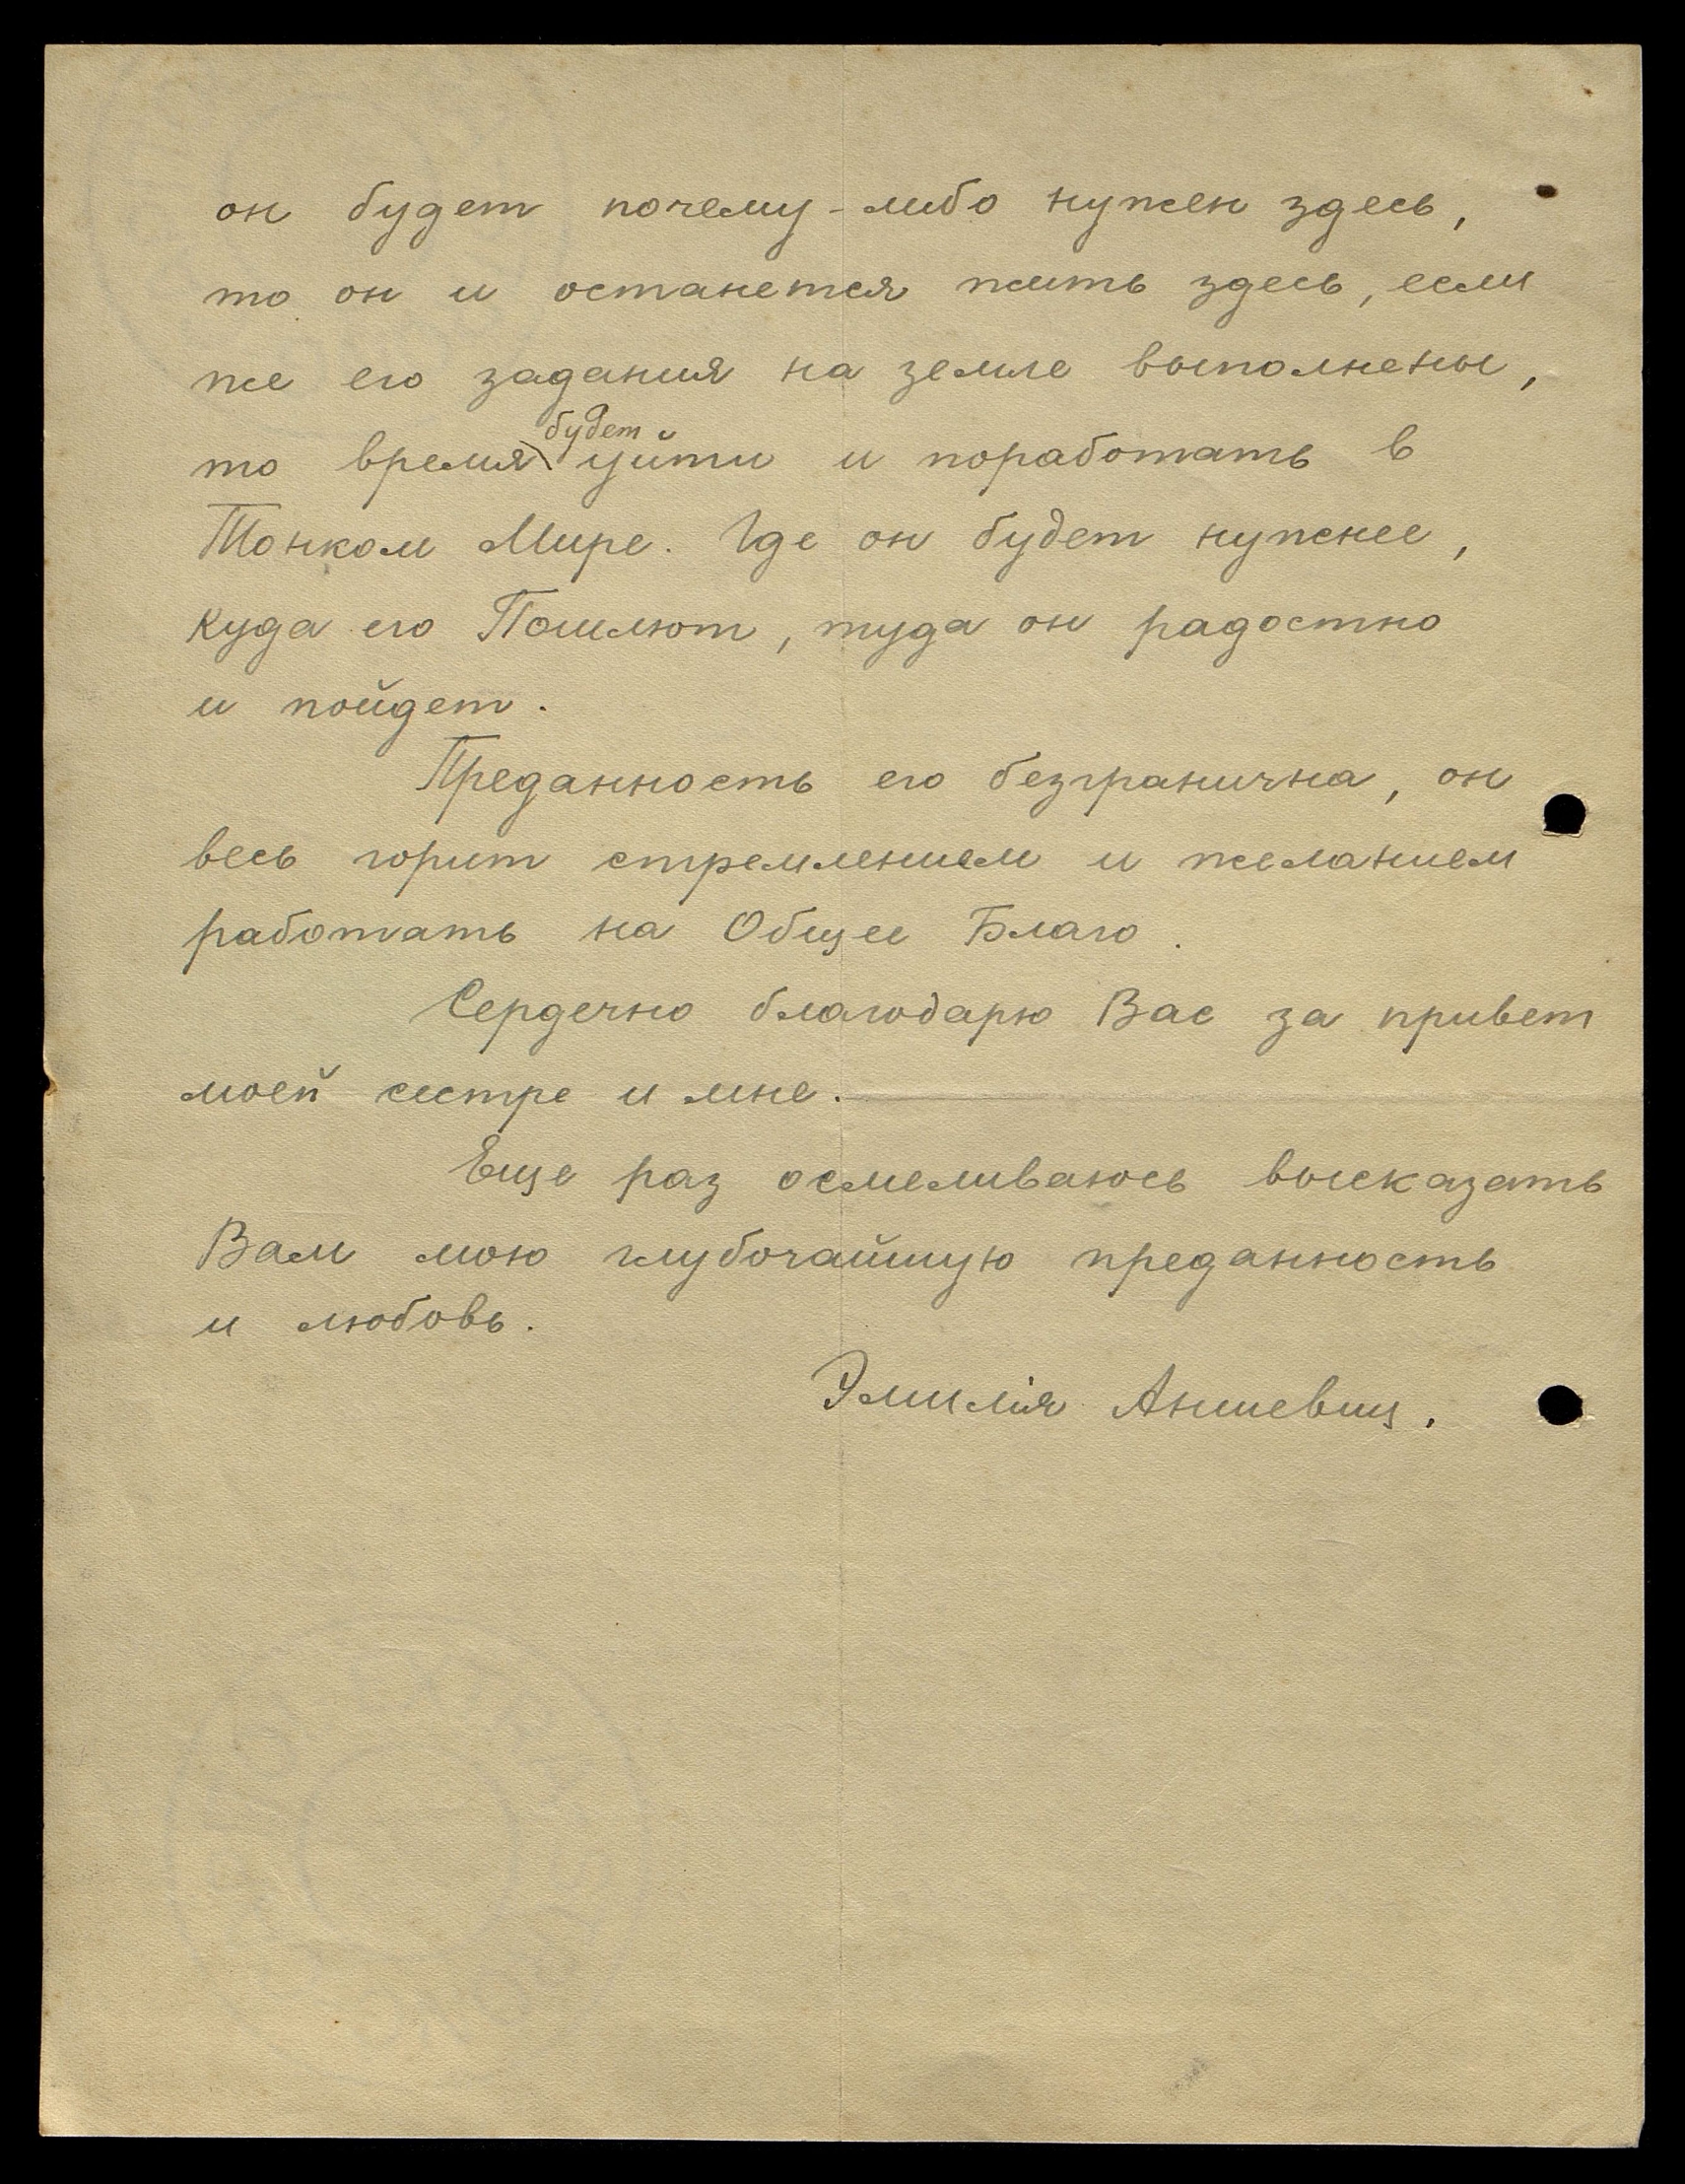 он будет почему-либо нужен здесь,
то он и останется жить здесь, если
же его задания на земле выполнены,
то время будет уйти и поработать в
Тонком Мире. Где он будет нужнее,
куда его Пошлют, туда он радостно
и пойдет.
Преданность его безгранична, он
весь горит стремлением и желанием
работать на Общее Благо.
Сердечно благодарю Вас за привет
моей сестре и мне.
Еще раз осмеливаюсь высказать
Вам мою глубочайшую преданность
и любовь.
Эмилія